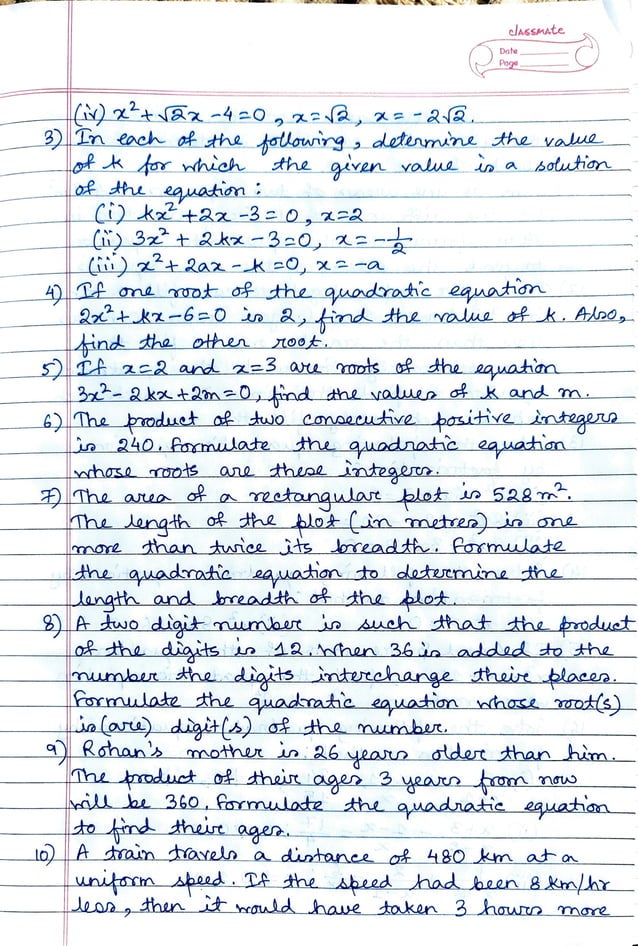 classmate
Date
Page
(iv) x² + √2x - 4 = 0, x = √2, x = -2√2.
3) In each of the following, determine the value
of k for which the given value is a solution
of the equation:
(i) kx² + 2x - 3 = 0, x = 2
(ii) 3x² + 2kx - 3 = 0, x = -1/2
(iii) x² + 2ax - k = 0, x = -a
4) If one root of the quadratic equation
2x² + kx - 6 = 0 is 2, find the value of k. Also,
find the other root.
5) If x=2 and x=3 are roots of the equation
3x² - 2kx + 2m = 0, find the values of k and m.
6) The product of two consecutive positive integers
is 240. Formulate the quadratic equation
whose roots are these integers.
7) The area of a rectangular plot is 528 m².
The length of the plot (in metres) is one
more than twice its breadth. Formulate
the quadratic equation to determine the
length and breadth of the plot.
8) A two digit number is such that the product
of the digits is 12. When 36 is added to the
number the digits interchange their places.
Formulate the quadratic equation whose root(s)
is (are) digit(s) of the number.
9) Rohan's mother is 26 years older than him.
The product of their ages 3 years from now
will be 360. Formulate the quadratic equation
to find their ages.
10) A train travels a distance of 480 km at a
uniform speed. If the speed had been 8 km/hr
less, then it would have taken 3 hours more